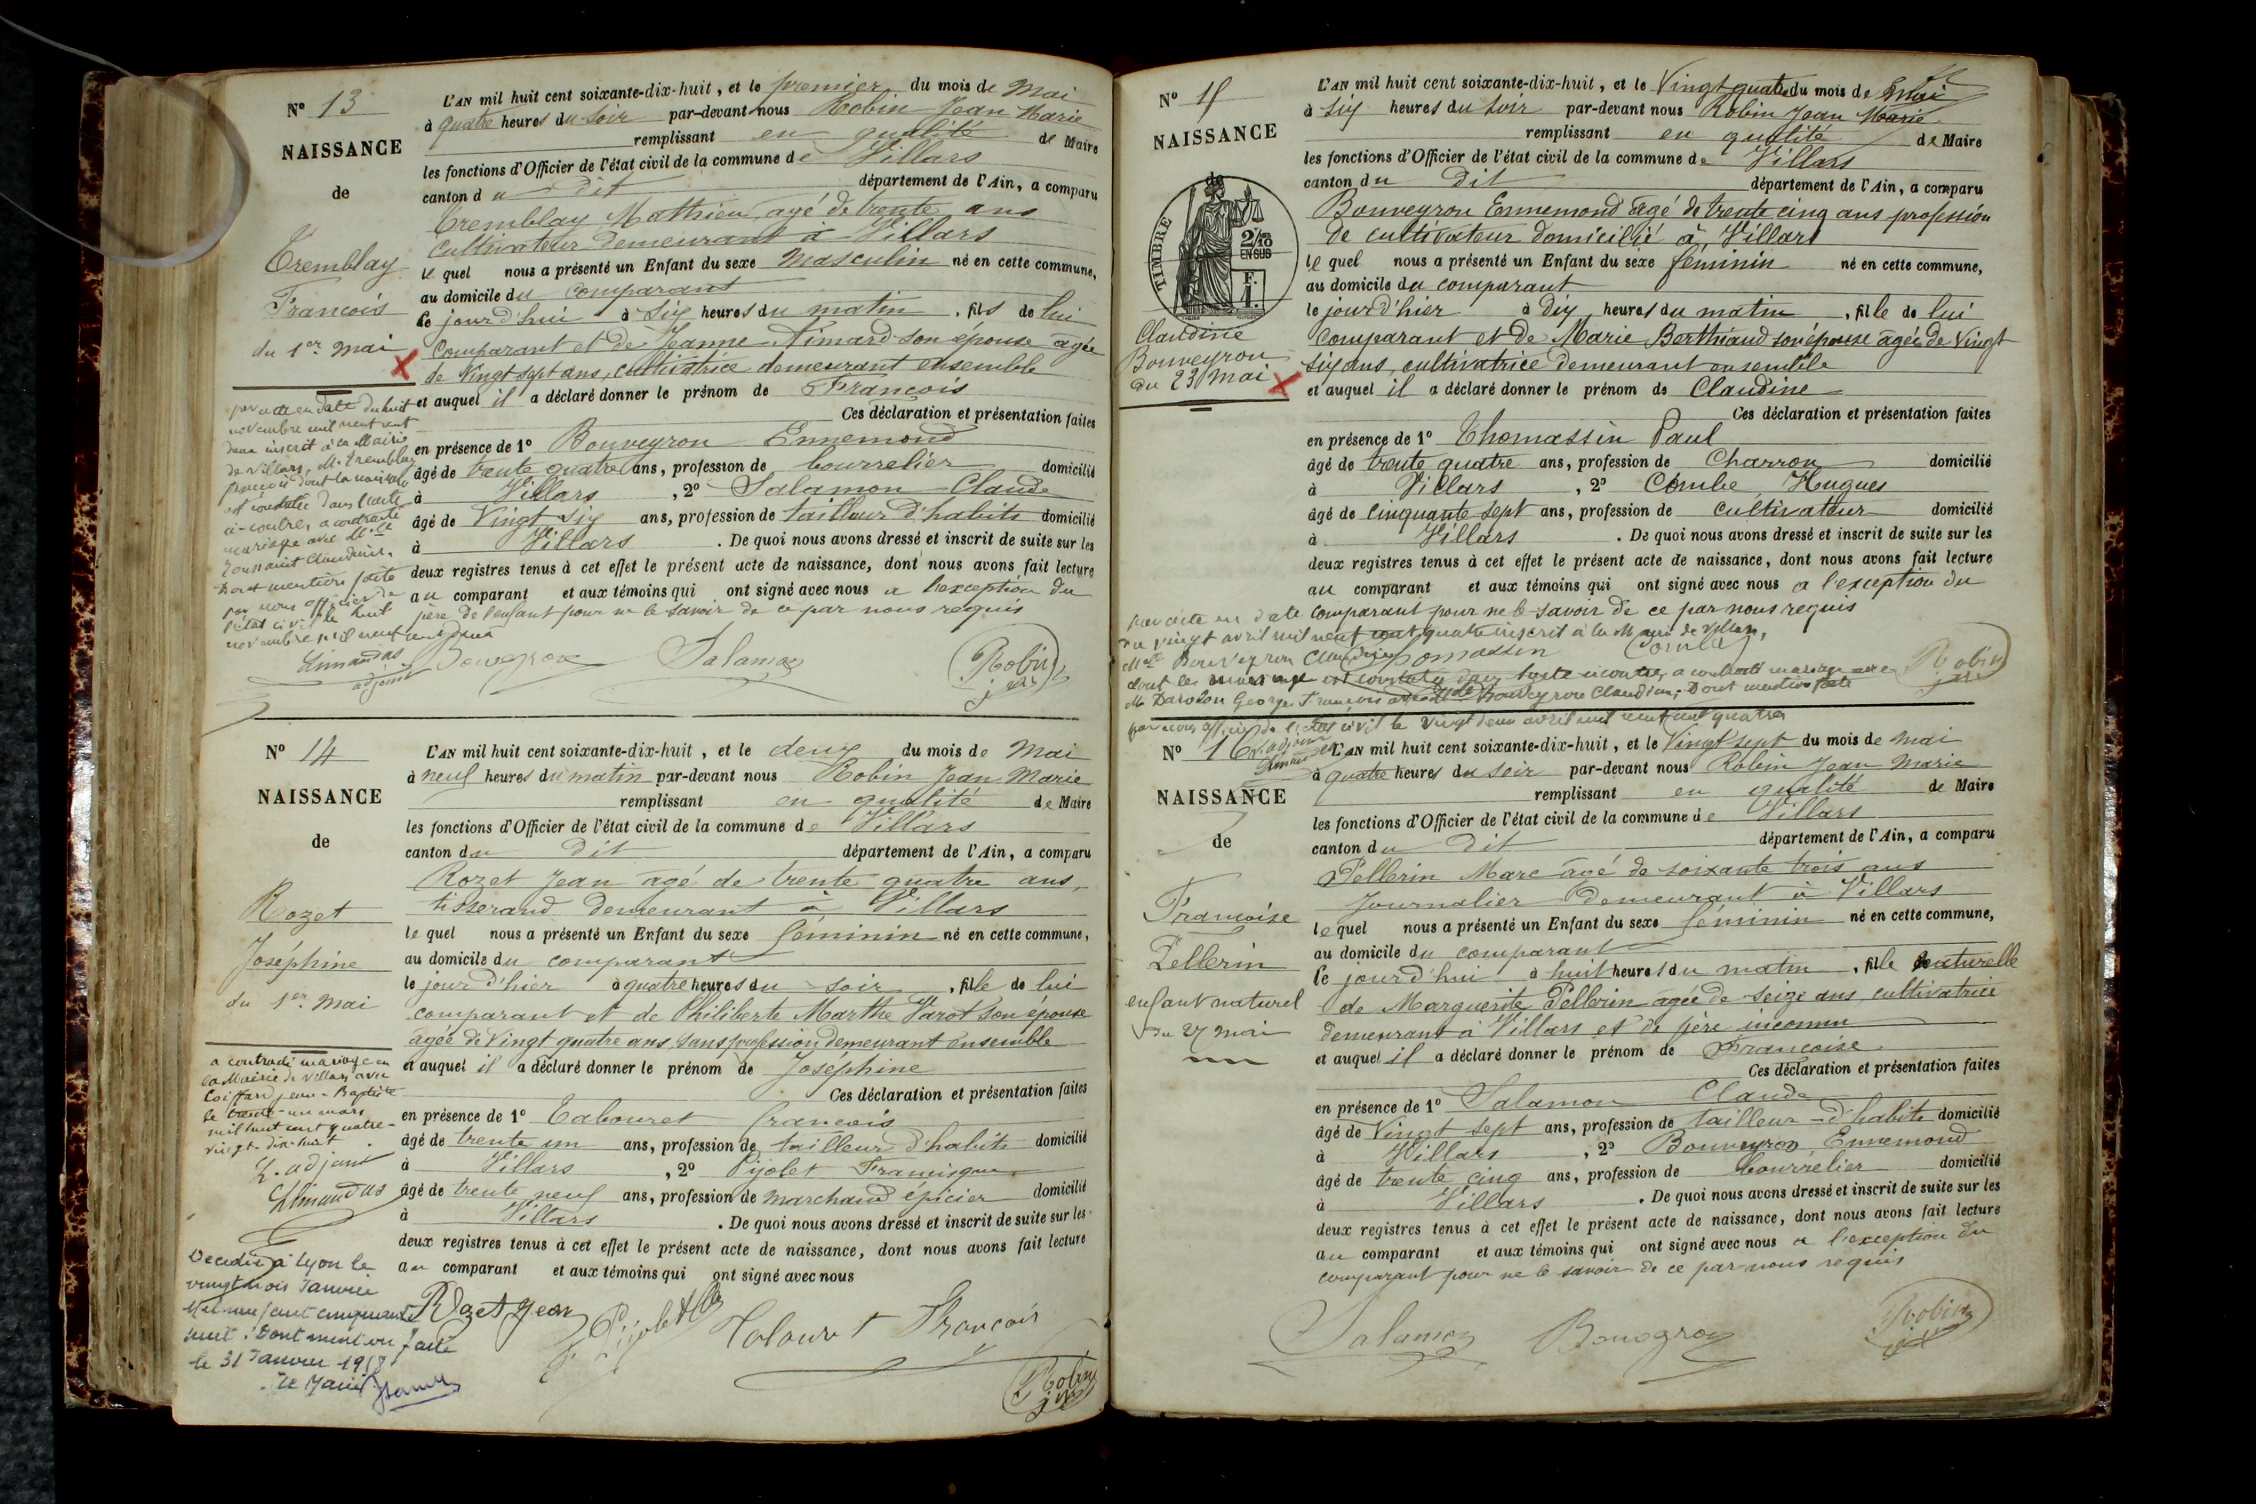 N° 13
NAISSANCE
de
Tremblay
François
du 1er mai
L'AN mil huit cent soixante-dix-huit, et le premier du mois de Mai
à quatre heures du soir par-devant nous Robin Jean Marie
remplissant en qualité de Maire
les fonctions d'Officier de l'état civil de la commune de Villars
canton du Dit département de l'Ain, a comparu
Tremblay Mathieu agé de trente ans
cultivateur demeurant à Villars
lequel nous a présenté un Enfant du sexe Masculin né en cette commune,
au domicile du comparant
le jour d'hui à six heures du matin, fils de lui
comparant et de Jeanne Aimard son épouse agée
de Vingt sept ans, cultivatrice demeurant ensemble
et auquel il a déclaré donner le prénom de François
Ces déclaration et présentation faites
en présence de 1° Bouveyron Ennemond
âgé de trente quatre ans, profession de bourrelier domicilié
à Villars, 2° Salamon Claude
âgé de Vingt six ans, profession de tailleur d'habits domicilié
à Villars. De quoi nous avons dressé et inscrit de suite sur les
deux registres tenus à cet effet le présent acte de naissance, dont nous avons fait lecture
au comparant et aux témoins qui ont signé avec nous a l'exception du
père de l'enfant pour ne le savoir de ce par nous requis
par acte en date du huit
novembre mil neuf cent
deux inscrit à la Mairie
de Villars, M. Tremblay
François dont la naissance
est constatée dans l'acte
ci-contre, a contracté
mariage avec Mlle
Toussaint Claudine.
Dont mention faite
par nous officier de
l'état civil le huit
novembre mil neuf cent deux
Limandas
adjoint
Bouveyron
Salamon
Robin
N° 14
NAISSANCE
de
Rozet
Joséphine
du 1er Mai
L'AN mil huit cent soixante-dix-huit, et le deux du mois de Mai
à neuf heures du matin par-devant nous Robin Jean Marie
remplissant en qualité de Maire
les fonctions d'Officier de l'état civil de la commune de Villars
canton du Dit département de l'Ain, a comparu
Rozet Jean agé de trente quatre ans,
tisserand demeurant à Villars
lequel nous a présenté un Enfant du sexe féminin né en cette commune,
au domicile du comparant
le jour d'hier à quatre heures du soir, fille de lui
comparant et de Philiberte Marthe Varot son épouse
agée de Vingt quatre ans, sans profession demeurant ensemble
et auquel il a déclaré donner le prénom de Joséphine
Ces déclaration et présentation faites
en présence de 1° Tabouret François
âgé de trente un ans, profession de tailleur d'habits domicilié
à Villars, 2° Pijolet Francisque
âgé de trente neuf ans, profession de marchand épicier domicilié
à Villars. De quoi nous avons dressé et inscrit de suite sur les
deux registres tenus à cet effet le présent acte de naissance, dont nous avons fait lecture
au comparant et aux témoins qui ont signé avec nous
a contracté mariage en
la Mairie de Villars avec
Coiffard Jean-Baptiste
le trente-un mars
mil huit cent quatre-
vingt-dix-huit.
L'adjoint
Limandas
Décédée à Lyon le
vingt trois Janvier
Mil neuf cent cinquante
huit. Dont mention faite
le 31 Janvier 1958
Le Maire
Rozet Jean
Pijolet
Tabouret François
Robin
N° 15
NAISSANCE
de
TIMBRE
2/10
EN SUS
F.
1.
Claudine
Bouveyron
du 23 Mai
L'AN mil huit cent soixante-dix-huit, et le Vingt quatre du mois de Mai
à six heures du soir par-devant nous Robin Jean Marie
remplissant en qualité de Maire
les fonctions d'Officier de l'état civil de la commune de Villars
canton du Dit département de l'Ain, a comparu
Bouveyron Ennemond agé de trente cinq ans profession
de cultivateur domicilié à Villars
lequel nous a présenté un Enfant du sexe féminin né en cette commune,
au domicile du comparant
le jour d'hier à dix heures du matin, fille de lui
comparant et de Marie Berthiaud son épouse agée de Vingt
six ans, cultivatrice demeurant ensemble
et auquel il a déclaré donner le prénom de Claudine
Ces déclaration et présentation faites
en présence de 1° Thomassin Paul
âgé de trente quatre ans, profession de Charron domicilié
à Villars, 2° Combe Hugues
âgé de cinquante sept ans, profession de cultivateur domicilié
à Villars. De quoi nous avons dressé et inscrit de suite sur les
deux registres tenus à cet effet le présent acte de naissance, dont nous avons fait lecture
au comparant et aux témoins qui ont signé avec nous a l'exception du
comparant pour ne le savoir de ce par nous requis
par acte en date
du vingt avril mil neuf cent quatre inscrit à la Mairie de Villars,
Mlle Bouveyron Claudine
dont la naissance est constatée dans l'acte ci contre, a contracté mariage avec
M. Darolon Georges François Bouveyron Claudine. Dont mention faite
par nous officier de l'état civil le vingt deux avril mil neuf cent quatre
L'adjoint
Thomassin
Combe
Robin
N° 16
NAISSANCE
de
Françoise
Pellerin
enfant naturel
du 27 mai
L'AN mil huit cent soixante-dix-huit, et le Vingt sept du mois de Mai
à quatre heures du soir par-devant nous Robin Jean Marie
remplissant en qualité de Maire
les fonctions d'Officier de l'état civil de la commune de Villars
canton du Dit département de l'Ain, a comparu
Pellerin Marc agé de soixante trois ans
Journalier demeurant à Villars
lequel nous a présenté un Enfant du sexe féminin né en cette commune,
au domicile du comparant
le jour d'hui à huit heures du matin, fille naturelle
de Marguerite Pellerin agée de seize ans, cultivatrice
demeurant à Villars et de père inconnu
et auquel il a déclaré donner le prénom de Françoise
Ces déclaration et présentation faites
en présence de 1° Salamon Claude
âgé de Vingt sept ans, profession de tailleur d'habits domicilié
à Villars, 2° Bouveyron Ennemond
âgé de trente cinq ans, profession de bourrelier domicilié
à Villars. De quoi nous avons dressé et inscrit de suite sur les
deux registres tenus à cet effet le présent acte de naissance, dont nous avons fait lecture
au comparant et aux témoins qui ont signé avec nous a l'exception du
comparant pour ne le savoir de ce par nous requis
Salamon
Bouveyron
Robin